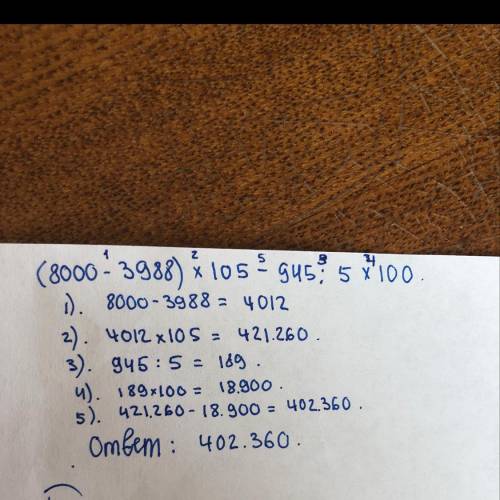 (8000 - 3988) × 105 - 945 : 5 × 100.
1). 8000 - 3988 = 4012
2). 4012 × 105 = 421.260.
3). 945 : 5 = 189.
4). 189 × 100 = 18.900.
5). 421.260 - 18.900 = 402.360.
Ответ: 402.360.